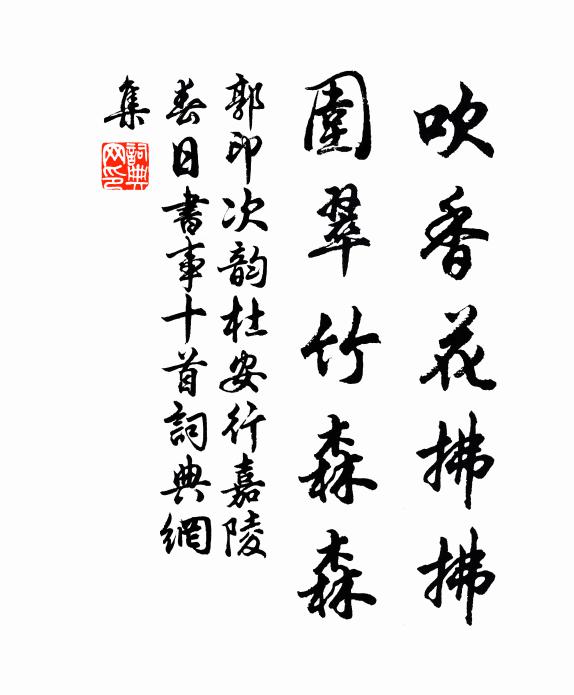 吹香花拂拂
圍翠竹森森
郭印次韵杜安行嘉陵
春日書事十首詞典網
集
詞典
网印